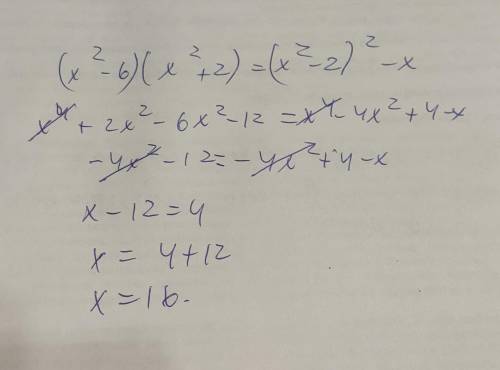 (x² - 6)(x² + 2) = (x² - 2)² - x
x⁴ + 2x² - 6x² - 12 = x⁴ - 4x² + 4 - x
- 4x² - 12 = - 4x² + 4 - x
x - 12 = 4
x = 4 + 12
x = 16.